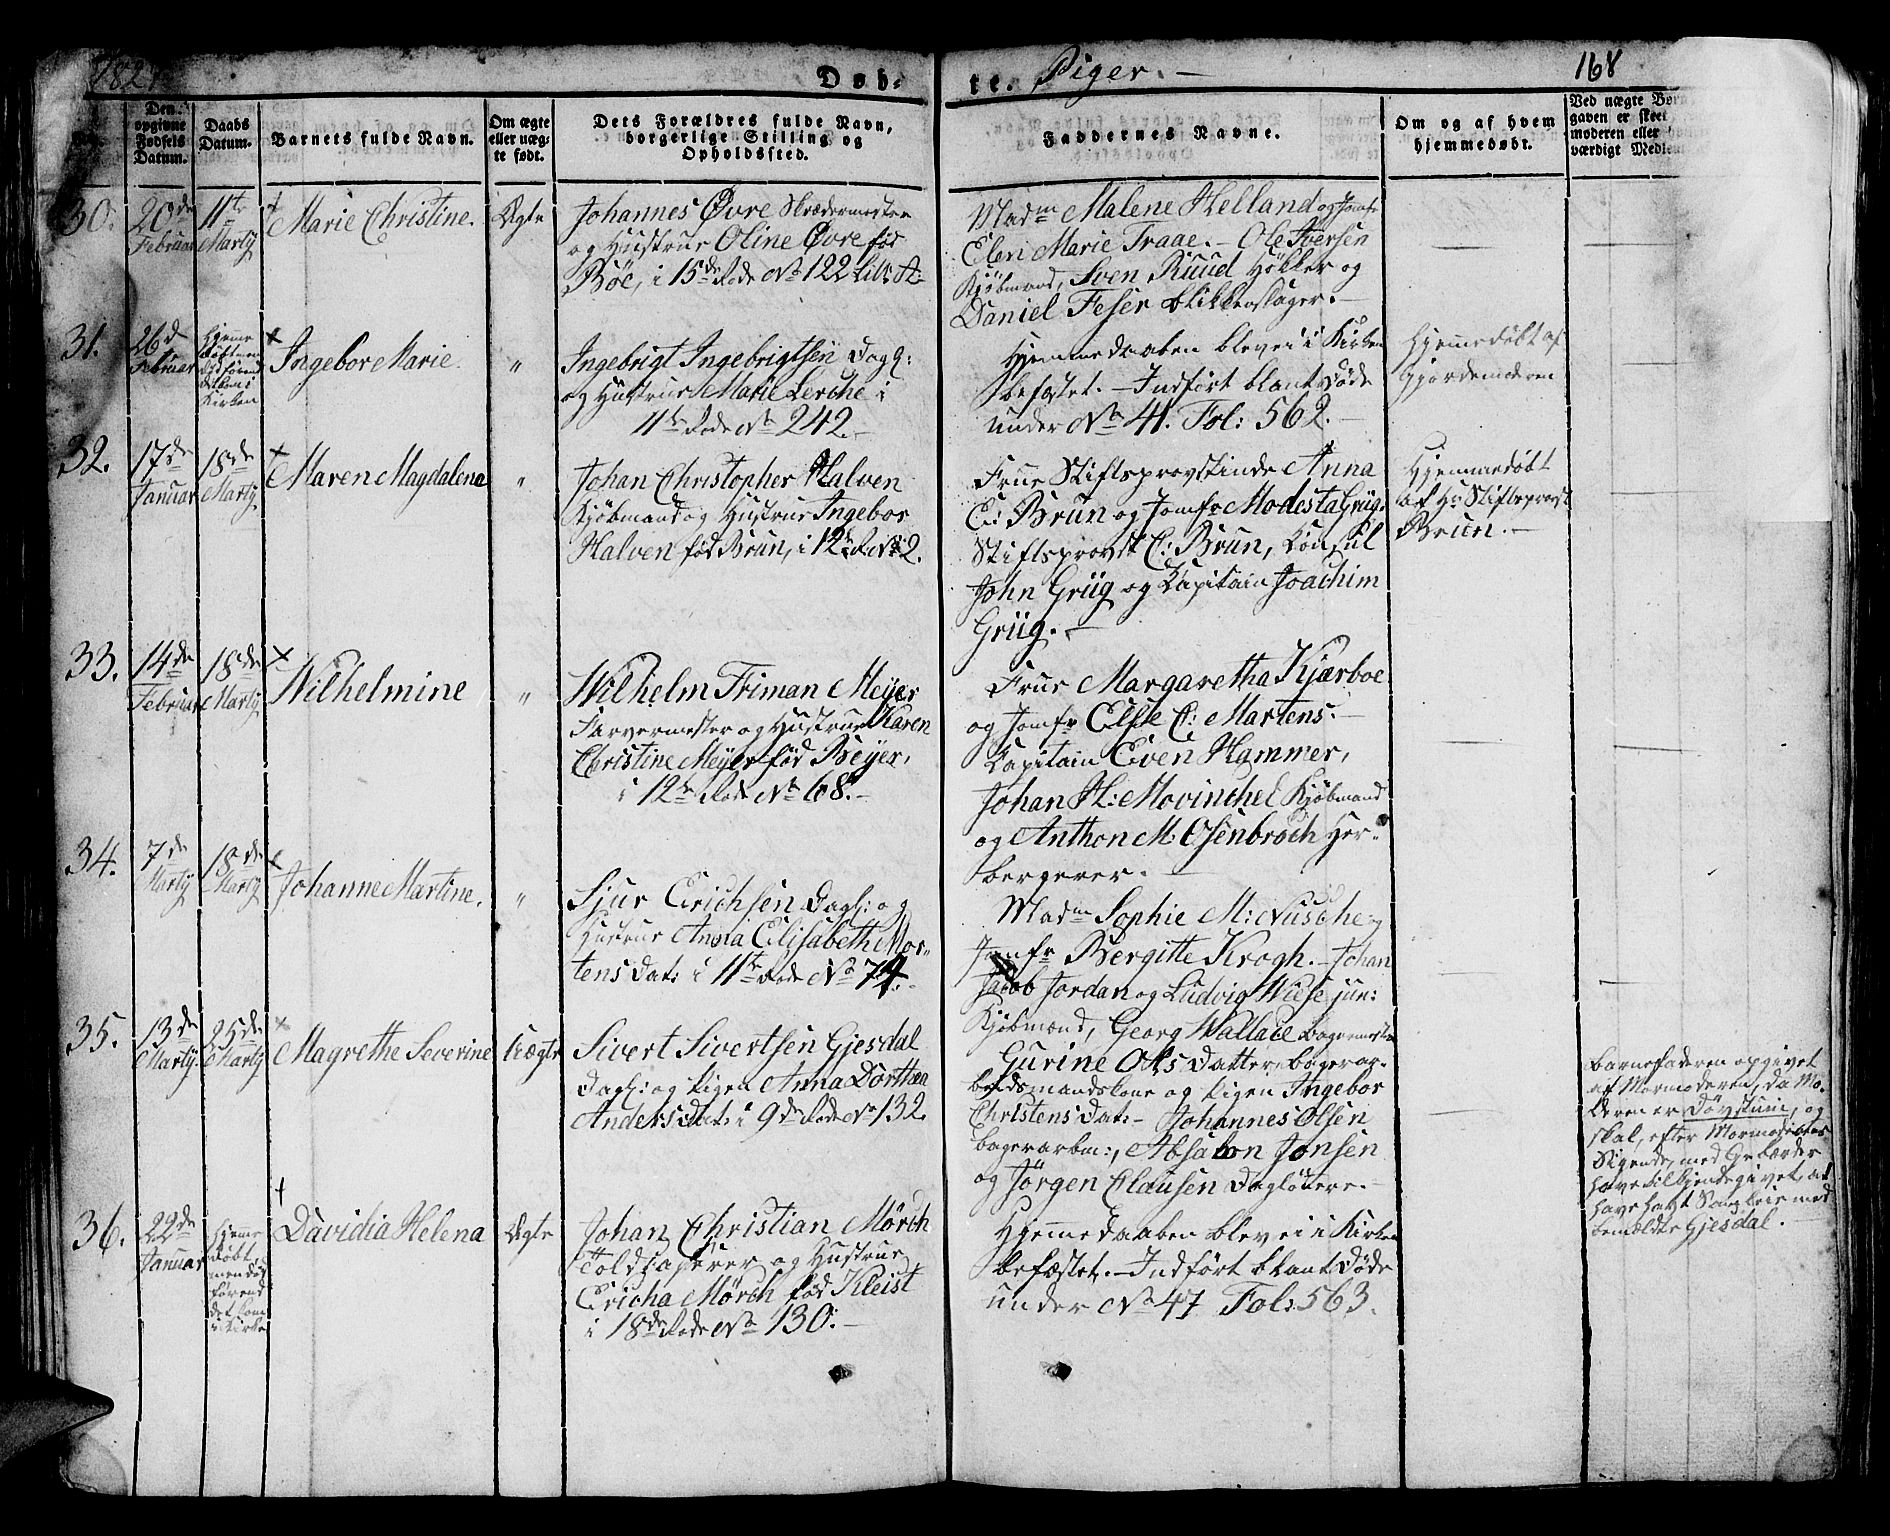 182
Døb-
te. Piger. —
168
Den opgivne Fødsels Datum.
Daabs Datum.
Barnets fulde Navn.
Om ægte eller uægte født.
Dets Forældres fulde Navn, borgerlige Stilling og Opholdssted.
Faddernes Navne.
Om og af hvem hjemmedøbt.
Ved uægte Børn
gaven er skeet
moderen eller
værdigt Medlem
30.
20de Februar
11te Martij
Marie Christine.
Ægte
Johannes Øvre Skrædermester
og Hustrue Oline Øvre fød
Bøe, i 15de Rode No 122 Litr. A.
Madm Malene Helland og Jomfr
Elen Marie Traae. — Ole Iversen
Kjøbmand, Sven Ruud Høkker og
Daniel Feser Blikkenslager. —
31.
26d Februar
Hjemme
døbt men
død førend
det kom i
Kirken
Ingebor Marie.
"
Ingebrigt Ingebrigtsen Dagl:
og Hustrue Marie Lerche i
11te Rode No 242. —
Hjemmedaaben blev ei i Kirken
befæstet. — Indført blant Døde
under No 41. Fol: 562. —
Hjemmedøbt af
Gjordemoderen
32.
17de Januar
18de Martij
Maren Magdalena
"
Johan Christopher Halven
Kjøbmand og Hustrue Ingebor
Halven fød Brun, i 12te R. No 2.
Frue Stiftsprovstinde Anna
C: Brun og Jomfr Modesta Grüg.
Stiftsprovst C: Brun, Konsul
John Grüg og Kapitain Joachim
Grüg. —
Hjemmedøbt
af Hr Stiftsprovst
Brun. —
33.
14de Februar
18de Martij
Wilhelmine
"
Wilhelm Friman Meyer
Farvermester og Hustrue Karen
Christine Meyer fød Beyer,
i 12te Rode No 68. —
Frue Margaretha Kjærboe
og Jomfr Else C: Martens. —
Kapitain Even Hammer,
Johan H: Movinchel Kjøbmand
og Anthon M: Osenbroch Her-
bergerer. —
34.
7de Martij
18de Martij
Johanne Martine.
"
Sjur Erichsen Dagl: og
Hustrue Anna Elisabeth Mor-
tens Dat: i 11te Rode No 74. —
Madm Sophie M: Nusche og
Jomfr Bergitte Krogh. — Johan
Jacob Jordan og Ludvig Wiese jun:
Kjøbmænd, Georg Wallace Bagermester
35.
13de Martij.
25de Martij
Magrethe Severine
Uægte
Sivert Sivertsen Gjesdal
Dagl: og Pigen Anna Dorthea
Anders Dat: i 9de Rode No 132.
Gurine Ols Datter, bagerar-
beidsmandskone og Pigen Ingebor
Christens Dat: — Johannes Olsen
bagerarbm:, Absalon Jonsen
og Jørgen Clausen Daglønere. —
Barnefaderen opgivet
af Mormoderen, da Mo-
deren er Døvstum, og
skal, efter Mormoderens
Sigende, med Gebærder
have tilkjendegivet, at
have havt Samleie med
bemeldte Gjesdal. —
36.
22de Januar
Hjemme
døbt,
men død
førend
det kom
i Kirke
Davidia Helena
Ægte
Johan Christian Mørch
Toldkaserer og Hustrue
Ericha Mørch fød Kleist
i 18de Rode No 130. —
Hjemmedaaben blev ei i Kirken
befæstet. — Indført blant Døde
under No 47 Fol: 563.